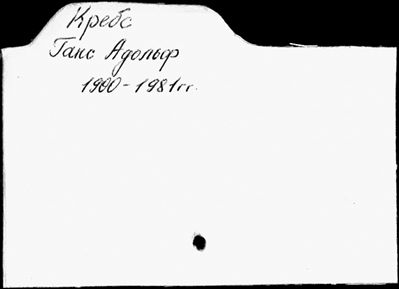 Кребс
Ганс Адольф
1900-1981гг.